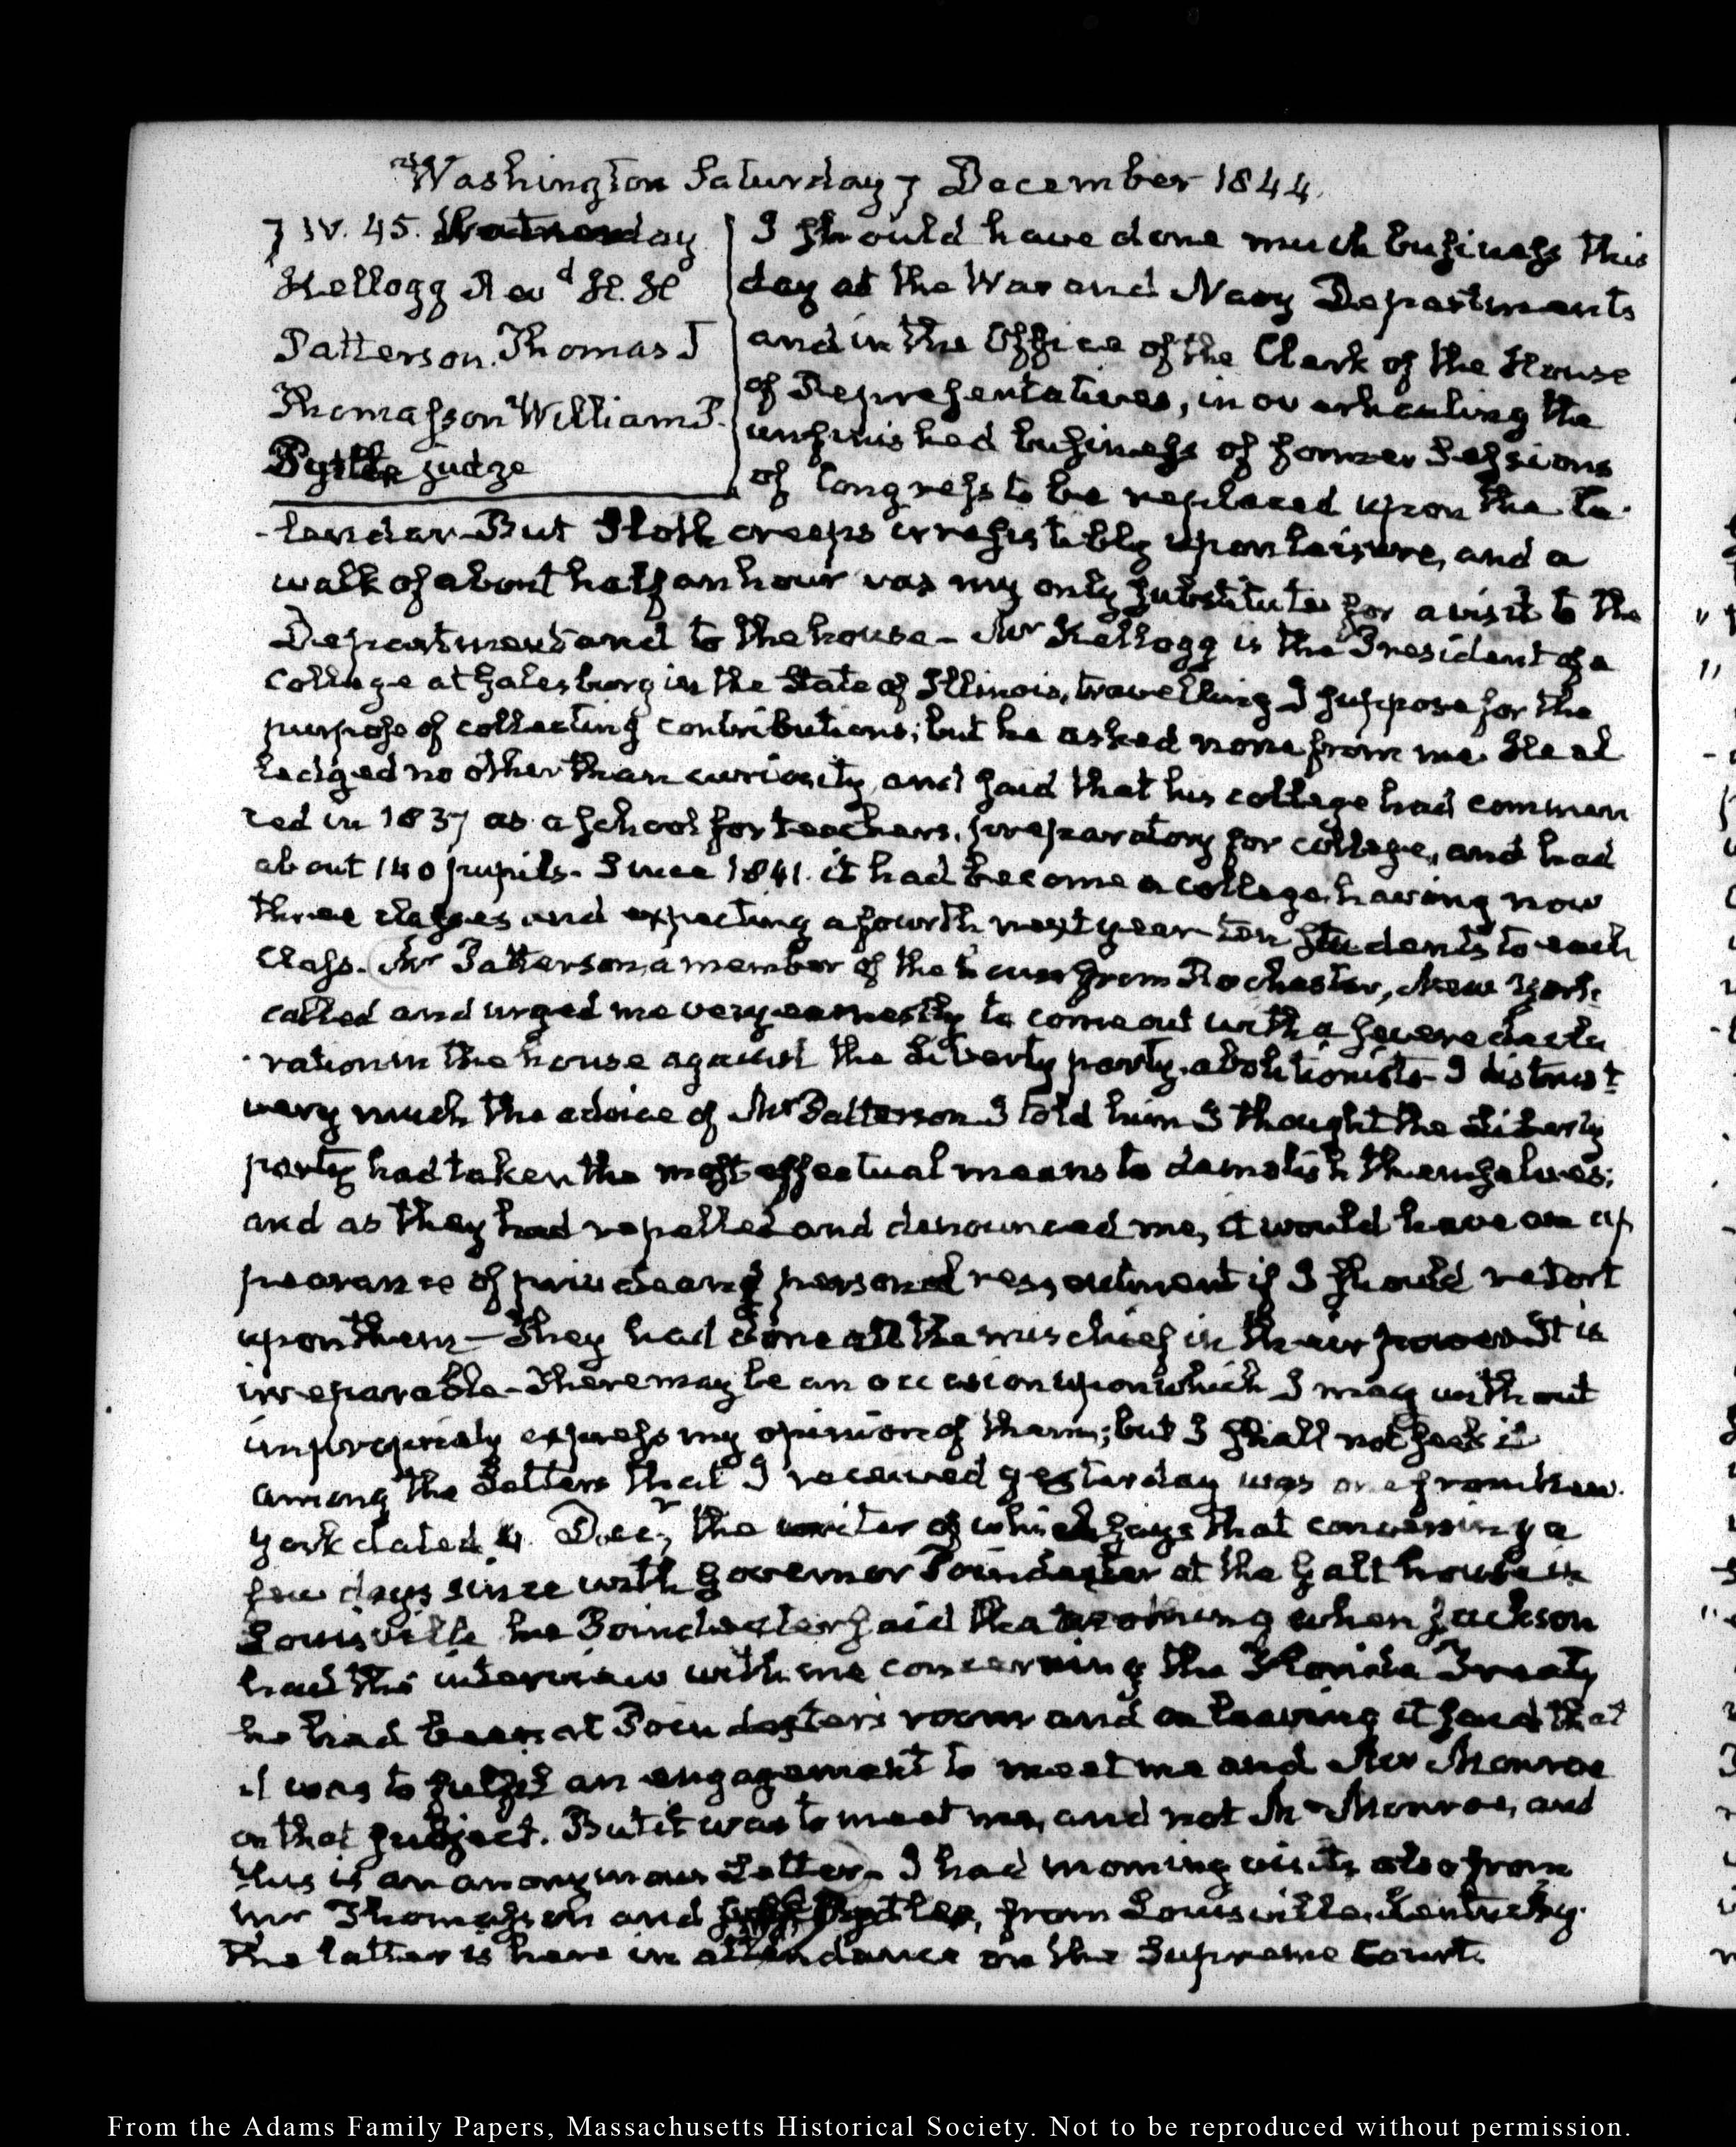 Washington Saturday 7 December 1844.
7 IV. 45. Saturday
Kellogg Revd H. H
Patterson. Thomas J
Thomasson William P.
Pirtle judge
I should have done much business this
day at the War and Navy Departments
and in the Office of the Clerk of the House
of Representatives, in overhauling the
unfinished business of former Sessions
of Congress to be replaced upon the Ca-
-lendar. But Sloth creeps irresistibly upon leisure, and a
walk of about half an hour was my only substitute for a visit to the
Departments and to the house - Mr Kellogg is the President of a
College at Galesburg in the State of Illinois, travelling I suppose for the
purpose of collecting contributions; but he asked none from me. He al
ledged no other than curiosity, and said that his college had commen
ced in 1837 as a school for teachers, preparatory for college, and had
about 140 pupils. Since 1841. it had become a college, having now
three classes and expecting a fourth next year ten students to each
Class. Mr Patterson, a member of the house from Rochester, New York
called and urged me very earnestly to come out with a severe decla
-ration in the house against the Liberty party, abolitionists - I distrust
very much the advice of Mr Patterson. I told him I thought the Liberty
party had taken the most effectual means to demolish themselves;
and as they had repelled and denounced me, it would have an ap
pearance of personal resentment if I should retort
upon them - They had done all the mischief in their power. It is
irreparable - There may be an occasion upon which I may without
impropriety express my opinion of them; but I shall not seek it
among the Letters that I received yesterday was one from New
York dated 4. Decr, the writer of which says that conversing a
few days since with Governor Poindexter at the Galt house in
Louisville he Poindexter said the morning when Jackson
had the interview with me concerning the Florida Treaty
he had been at Poindexters room and on leaving it said that
it was to fulfil an engagement to meet me and Mr Monroe
on that subject. But it was to meet me, and not Mr Monroe, and
this is an anonymous Letter. I had morning visits also from
Mr Thomasson and Judge Pirtle, from Louisville, Kentucky.
The latter is here in attendance on the Supreme Court.
From the Adams Family Papers, Massachusetts Historical Society. Not to be reproduced without permission.